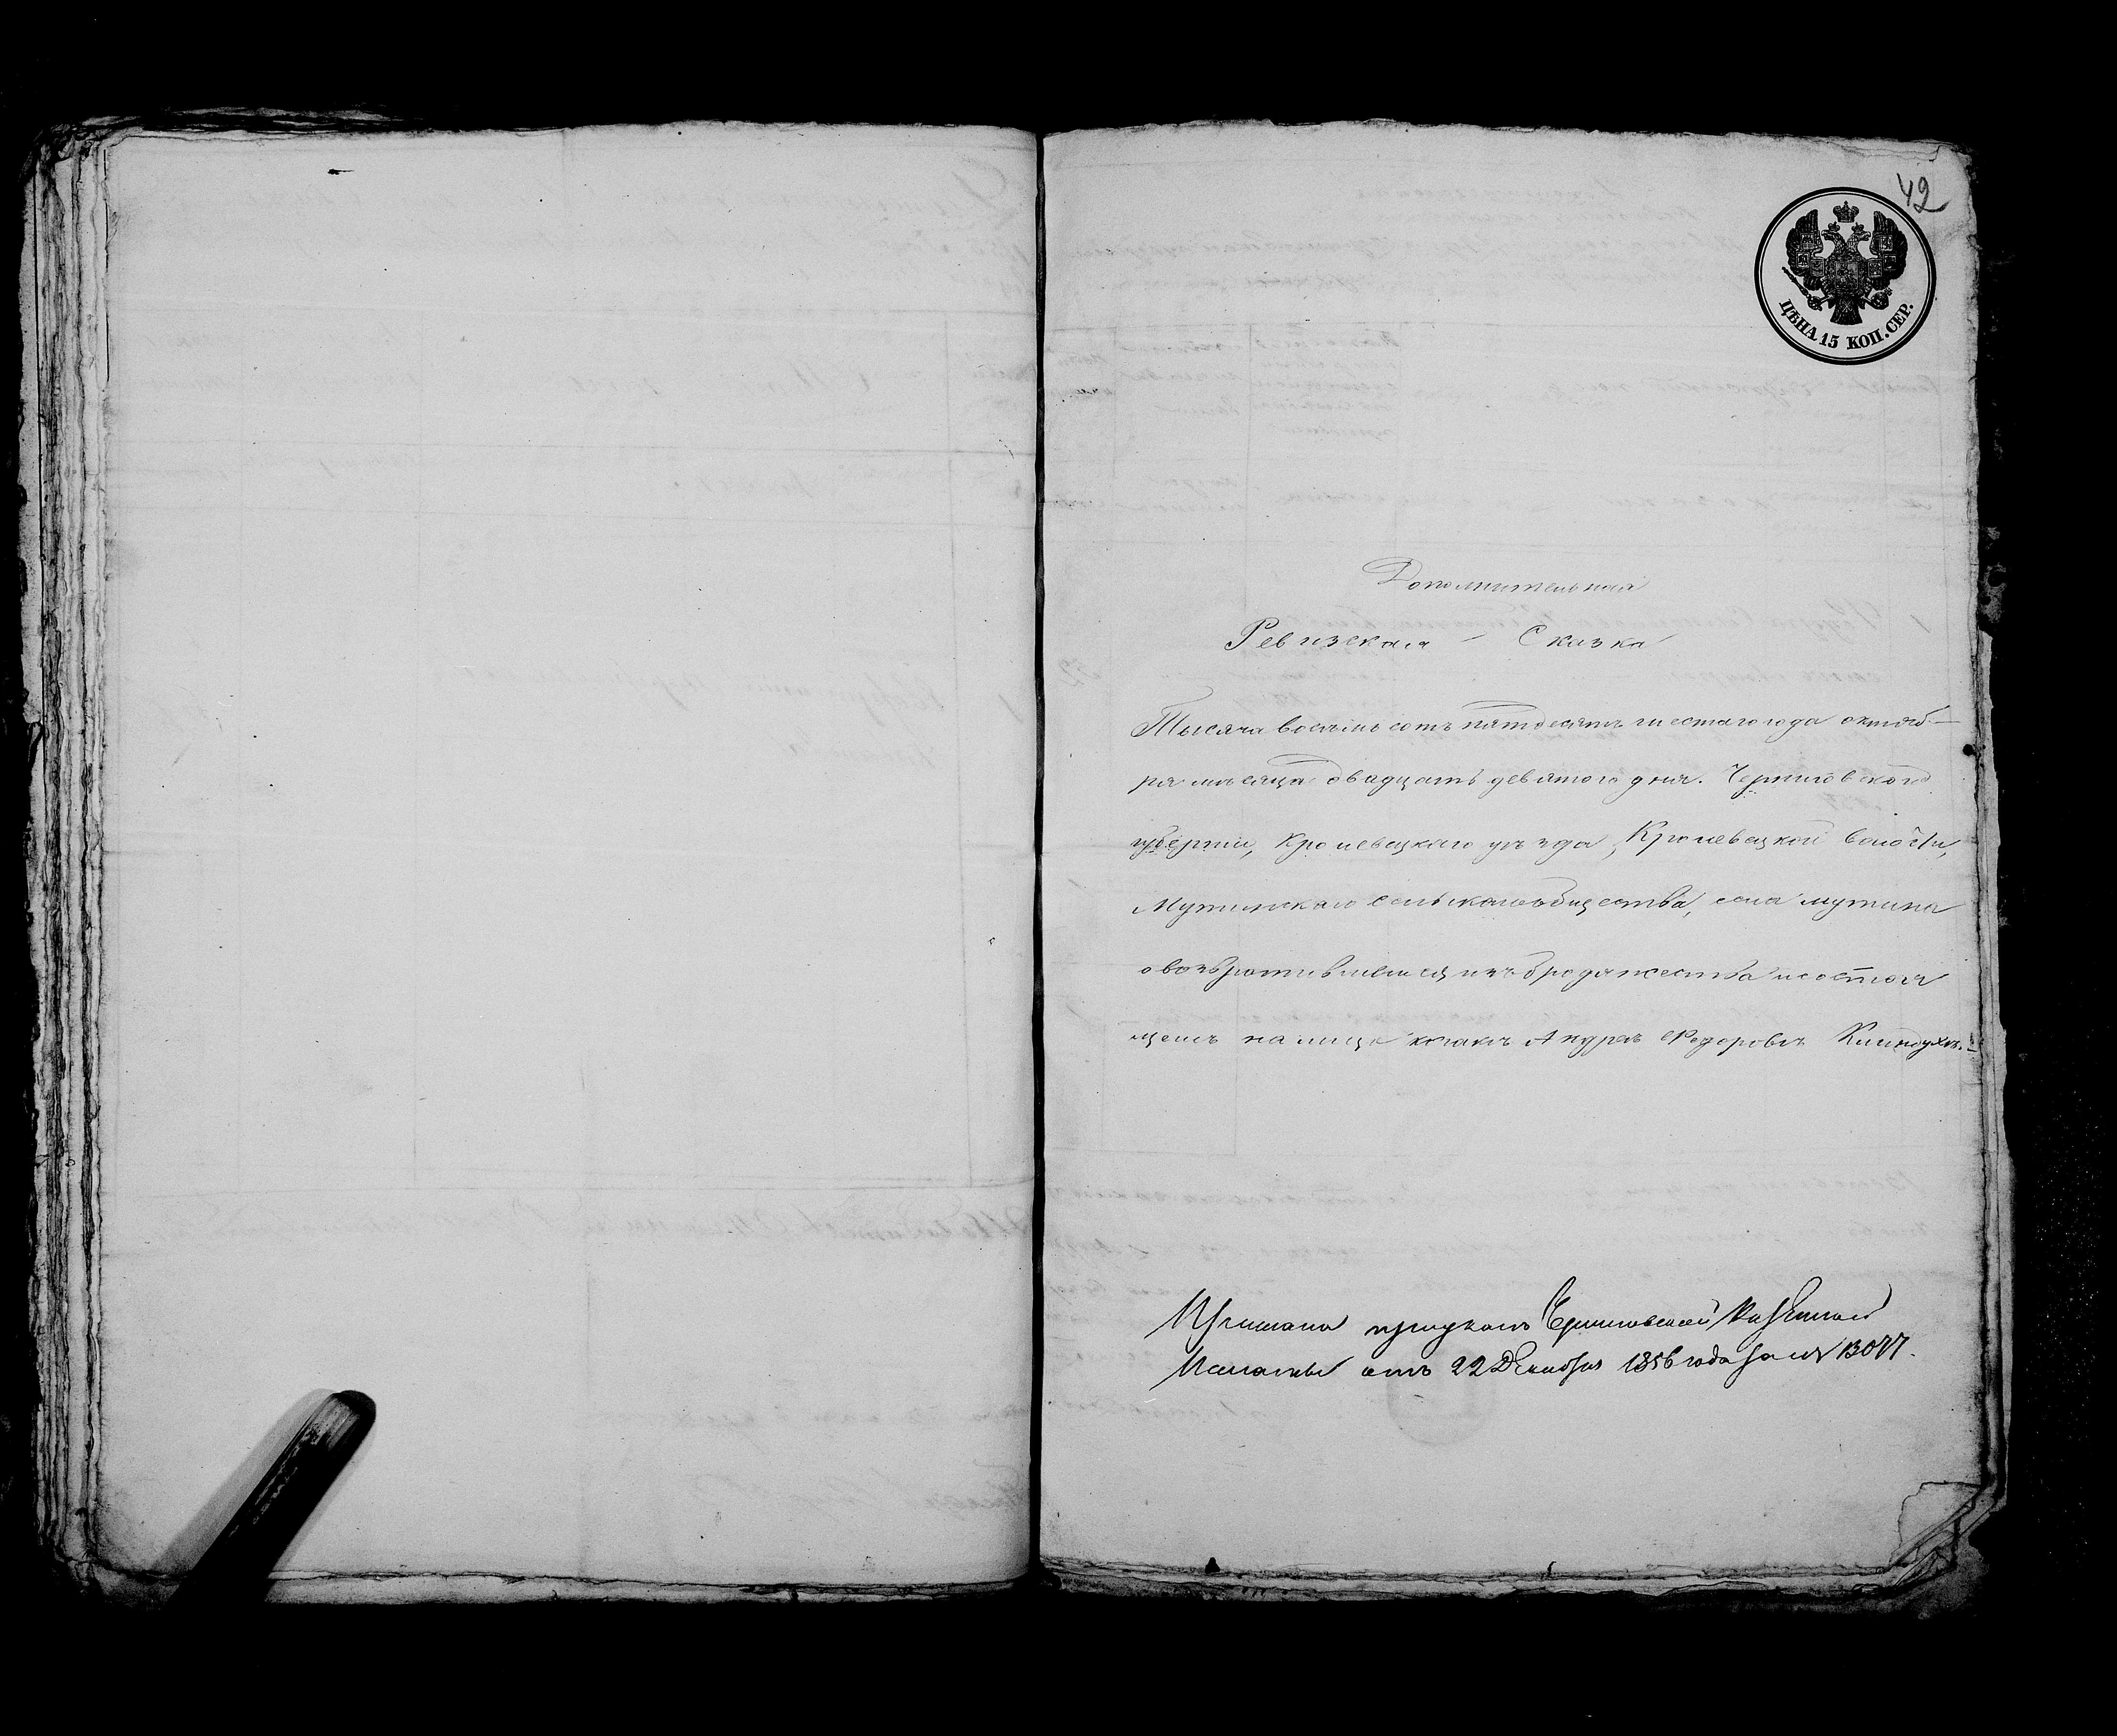 42
ЦѢНА 15 КОП. СЕР.
Дополнительная
Ревизская Сказка
Тысяча восемьсотъ пятдесятъ шестаго года октяб-
ря мѣсяца двадцать девятого дня. Черниговской
губерніи, Кролевецкаго уѣзда, Кролевецкой волости,
Мутинскаго сельскаго общества, села мутина
о возвратившемся изъ бродяжества и состоя
щемъ на лицо козакѣ Андреѣ Федоровѣ
при указѣ Черниговской Казенной
Палаты отъ 22 Декабря 1856 года за №